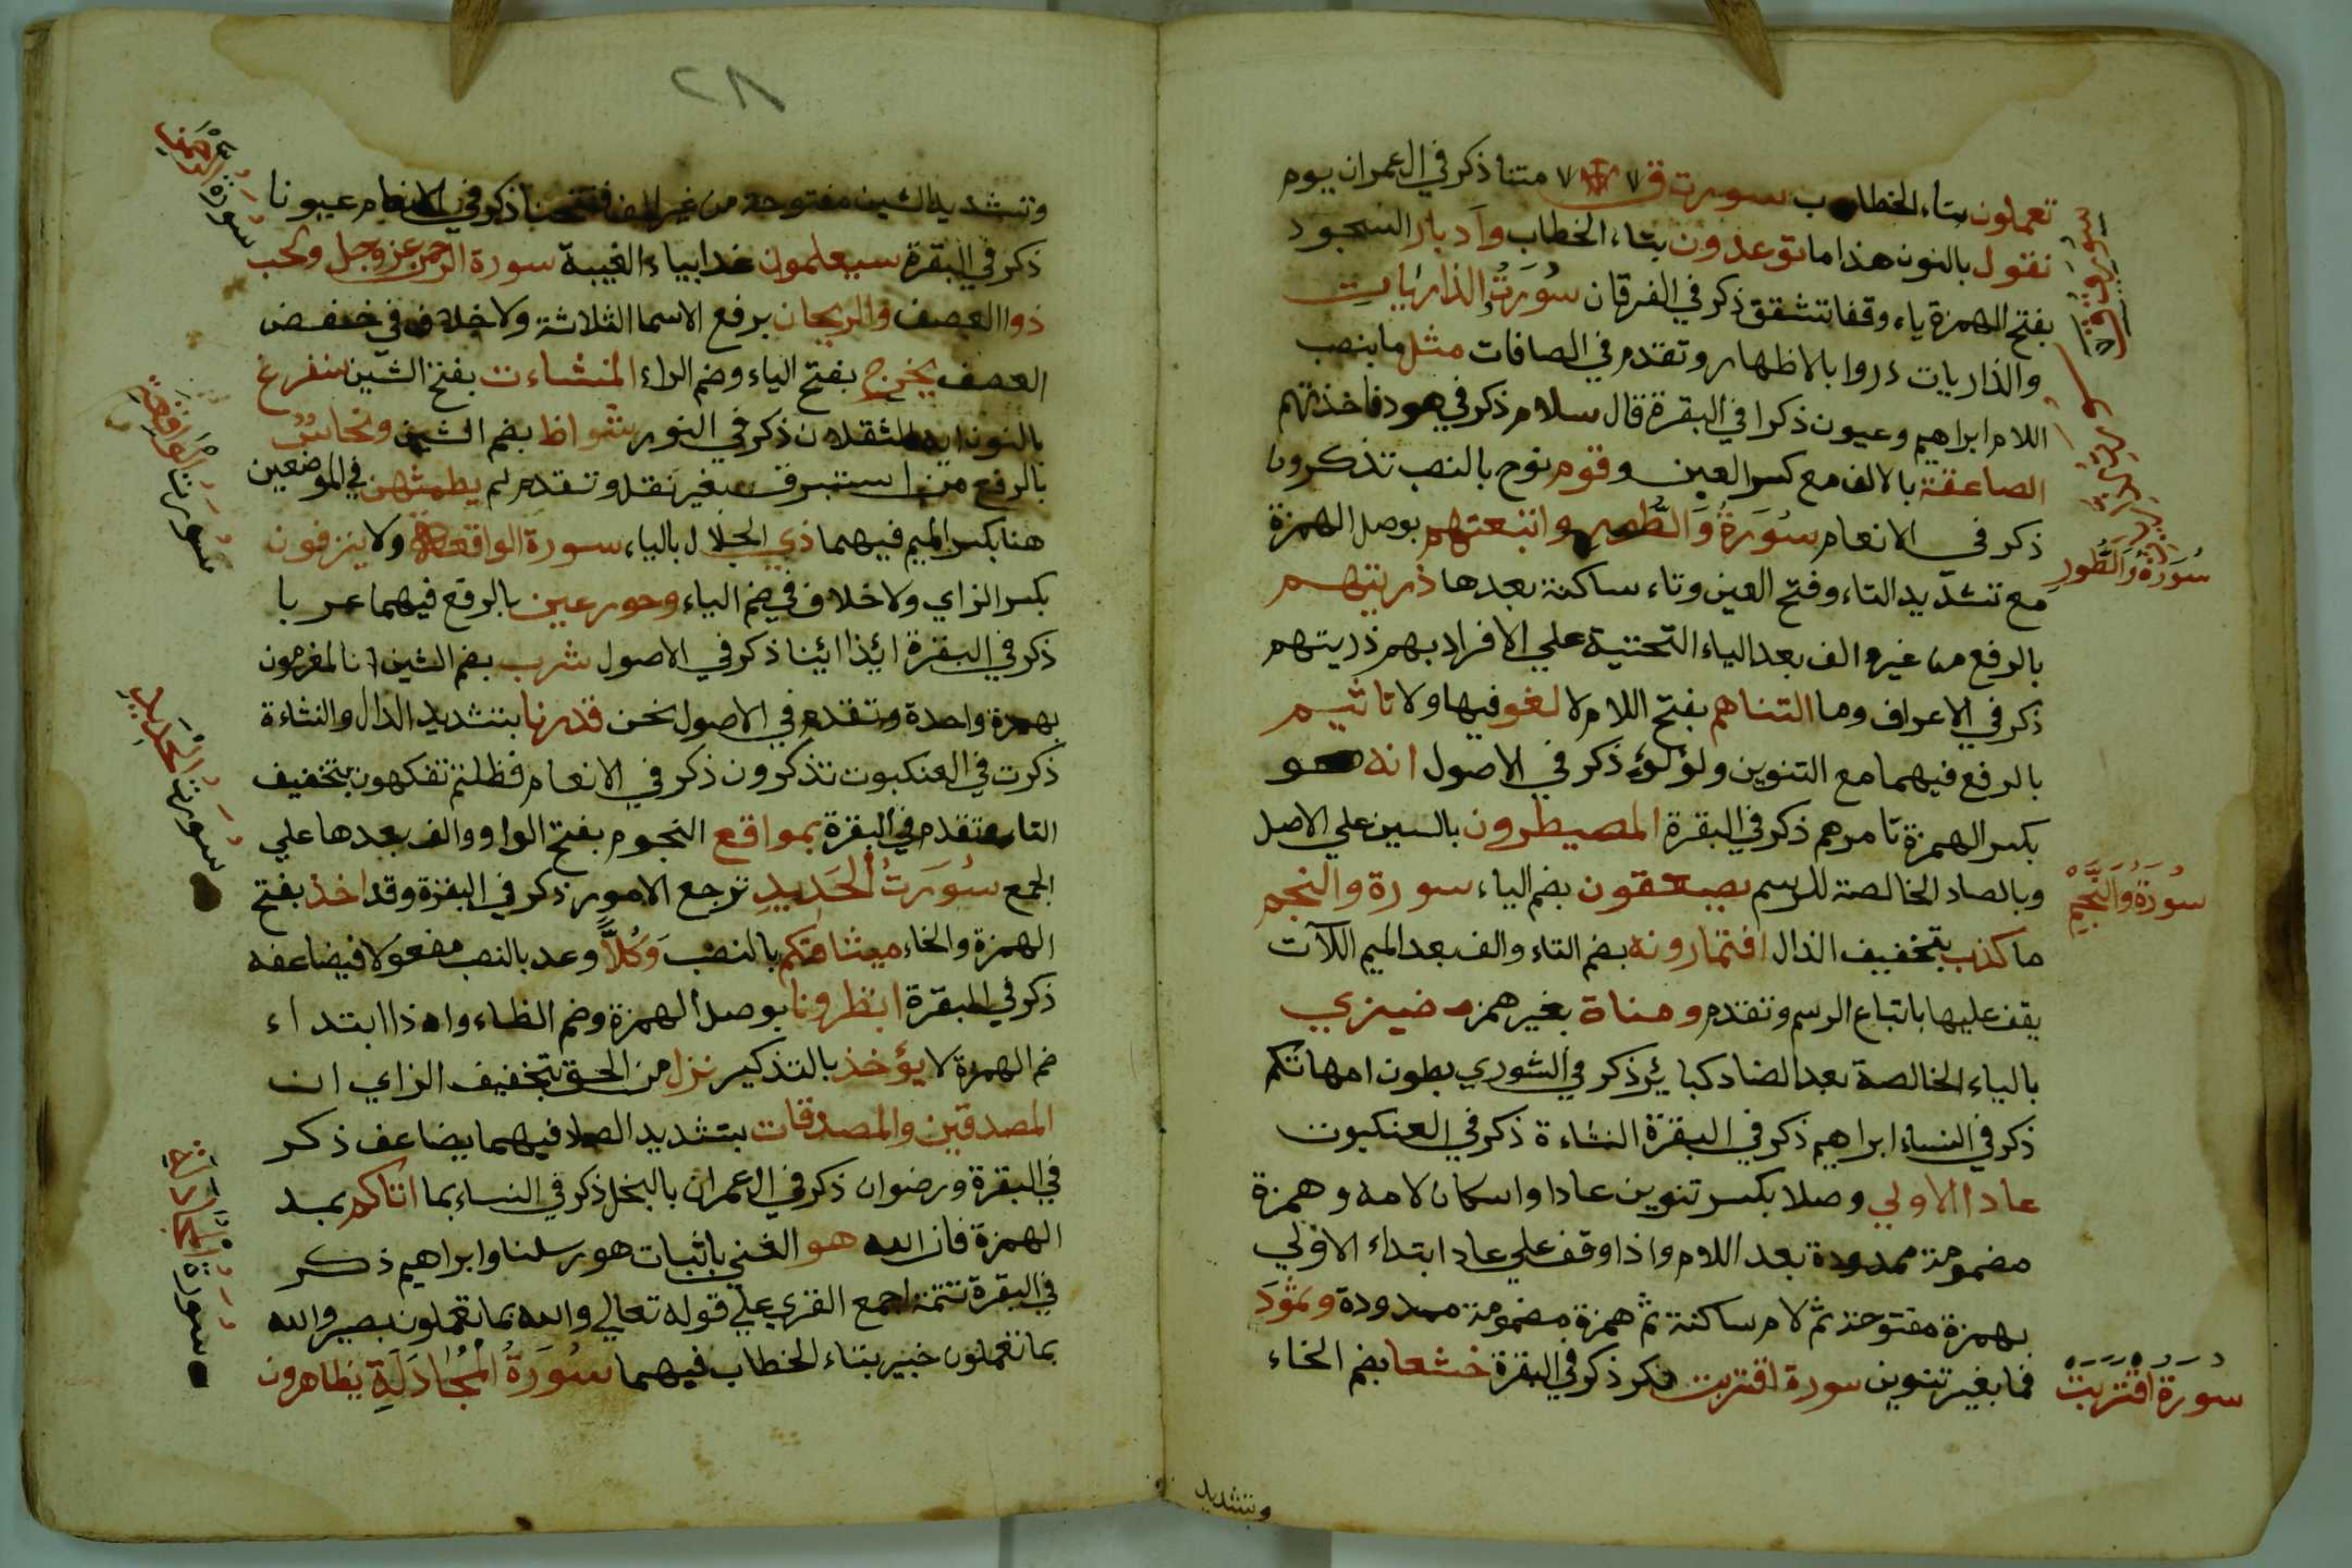 تعملون بتاء الخطاب سورت ق متنا ذكر في ال عمران يوم
نقول بالنون هذا ما توعدون بتاء الخطاب وادبار السجود
بفتح الهمزة ياء وقفا تشقق ذكر في الفرقان سُورَتُ الذاريات
والذاريات ذروا بالاظهار وتقدم في الصافات مثل ما بنصب
اللام ابراهيم وعيون ذكرا في البقرة قال سلام ذكر في هود فاخذتهم
الصاعقة بالالف مع كسر العين وقوم نوح بالنصب تذكرون
ذكر في الانعام سُورَةُ وَالطُّور واتبعتهم بوصل الهمزة
مع تشديد التاء وفتح العين وتاء ساكنة بعدها ذريتهم
بالرفع من غير الف بعد الياء التحتية علي الافراد بهم ذريتهم
ذكر في الاعراف وما التناهم بفتح اللام لا لغو فيها ولا تاثيم
بالرفع فيهما مع التنوين ولؤلؤ ذكر في الاصول انه هو
بكسر الهمزة تامرهم ذكر في البقرة المصيطرون بالسين علي الاصل
وبالصاد الخالصة للرسم يصعقون بضم الياء سورة والنجم
ما كذب بتخفيف الذال افتمارونه بضم التاء والف بعد الميم اللآت
يقف عليها باتباع الرسم وتقدم ومناة بغير همز ضيزي
بالياء الخالصة بعد الضاد كبائر ذكر في الشوري بطون امهاتكم
ذكر في النساء ابراهيم ذكر في البقرة النشاءة ذكر في العنكبوت
عادا الاولي وصلا بكسر تنوين عادا واسكان لامه وهمزة
مضمومة ممدودة بعد اللام واذا وقف علي عاد ابتداء الاولي
بهمزة مفتوحة ثم لام ساكنة ثم همزة مضمومة ممدودة وثمودَ
فما بغير تنوين سورة اقتربت نكر ذكر في البقرة خشعا بضم الخاء
سُورَةُ وَالطُّورِ
سُورَةُ وَالنَّجْمِ
سُورَةُ اقْتَرَبَتْ
وتشديد
٢٨
وتشديد الشين مفتوحة من غير الف ففتحنا ذكر في الانعام عيونا
ذكر في البقرة سيعلمون غدا بياء الغيبة سورة الرحمن عز وجل والحب
ذوا العصف والريحان برفع الاسما الثلاثة ولا خلاف في خفض
العصف يخرج بفتح الياء وضم الراء المنشاءت بفتح الشين سنفرغ
بالنون ايه الثقلان ذكر في النور شواظ بضم الشين ونحاسٌ
بالرفع من استبرق بغير نقل وتقدم لم يطمثهن في الموضعين
هنا بكسر الميم فيهما ذي الجلال بالياء سورة الواقعة ولا ينزفون
بكسر الزاي ولا خلاف في ضم الياء وحور عين بالرفع فيهما عربا
ذكر في البقرة ائذا ائنا ذكر في الاصول شرب بضم الشين انا لمغرمون
بهمزة واحدة وتقدم في الاصول نحن قدرنا بتشديد الدال والنشاءة
ذكرت في العنكبوت تذكرون ذكر في الانعام فظلتم تفكهون بتخفيف
التا وتقدم في البقرة بمواقع النجوم بفتح الواو والف بعدها علي
الجمع سُورَتُ الْحَدِيدِ ترجع الامور ذكر في البقرة وقد اخذ بفتح
الهمزة والخاء ميثاقكم بالنصب وَكُلّاً وعد بالنصب مفعولا فيضاعفه
ذكر في البقرة انظرونا بوصل الهمزة وضم الظاء واذا ابتداء
ضم الهمزة لا يؤخذ بالتذكير نزل من الحق بتخفيف الزاي ان
المصدقين والمصدقات بتشديد الصاد فيهما يضاعف ذكر
في البقرة ورضوان ذكر في ال عمران بالبخل ذكر في النساء بما اتاكم بمد
الهمزة فان الله هو الغني باثبات هو رسلنا وابراهيم ذكر
في البقرة تتمة اجمع القري علي قوله تعالي والله بما تعملون بصير والله
بما تعملون خبير بتاء الخطاب فيهما سُورَةُ الْمُجَادَلَةِ يظاهرون
سُورَةُ الرَّحْمَنِ
سورتُ الْوَاقِعَةِ
سورتُ الْحَدِيدِ
سورة الْمُجَادَلَةِ